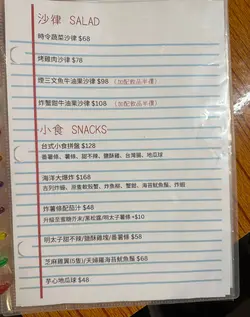 沙律 SALAD
時令蔬菜沙律 $68
烤雞肉沙律 $78
煙三文魚牛油果沙律 $98 (加配飲品半價)
炸蟹鉗牛油果沙律 $108 (加配飲品半價)
小食 SNACKS
台式小食拼盤 $128
番薯條、薯條、甜不辣、鹽酥雞、台灣腸、地瓜球
海洋大爆炸 $168
吉列炸蠔、原隻軟殼蟹、炸魚柳、蟹鉗、海苔魷魚鬚、炸蝦
炸薯條配茄汁 $48
升級至蜜糖芥末/黑松露/明太子薯條 +$10
明太子甜不辣/鹽酥雞塊/番薯條 $58
芝麻雞翼(5隻)/天婦羅海苔魷魚鬚 $68
芋心地瓜球 $48